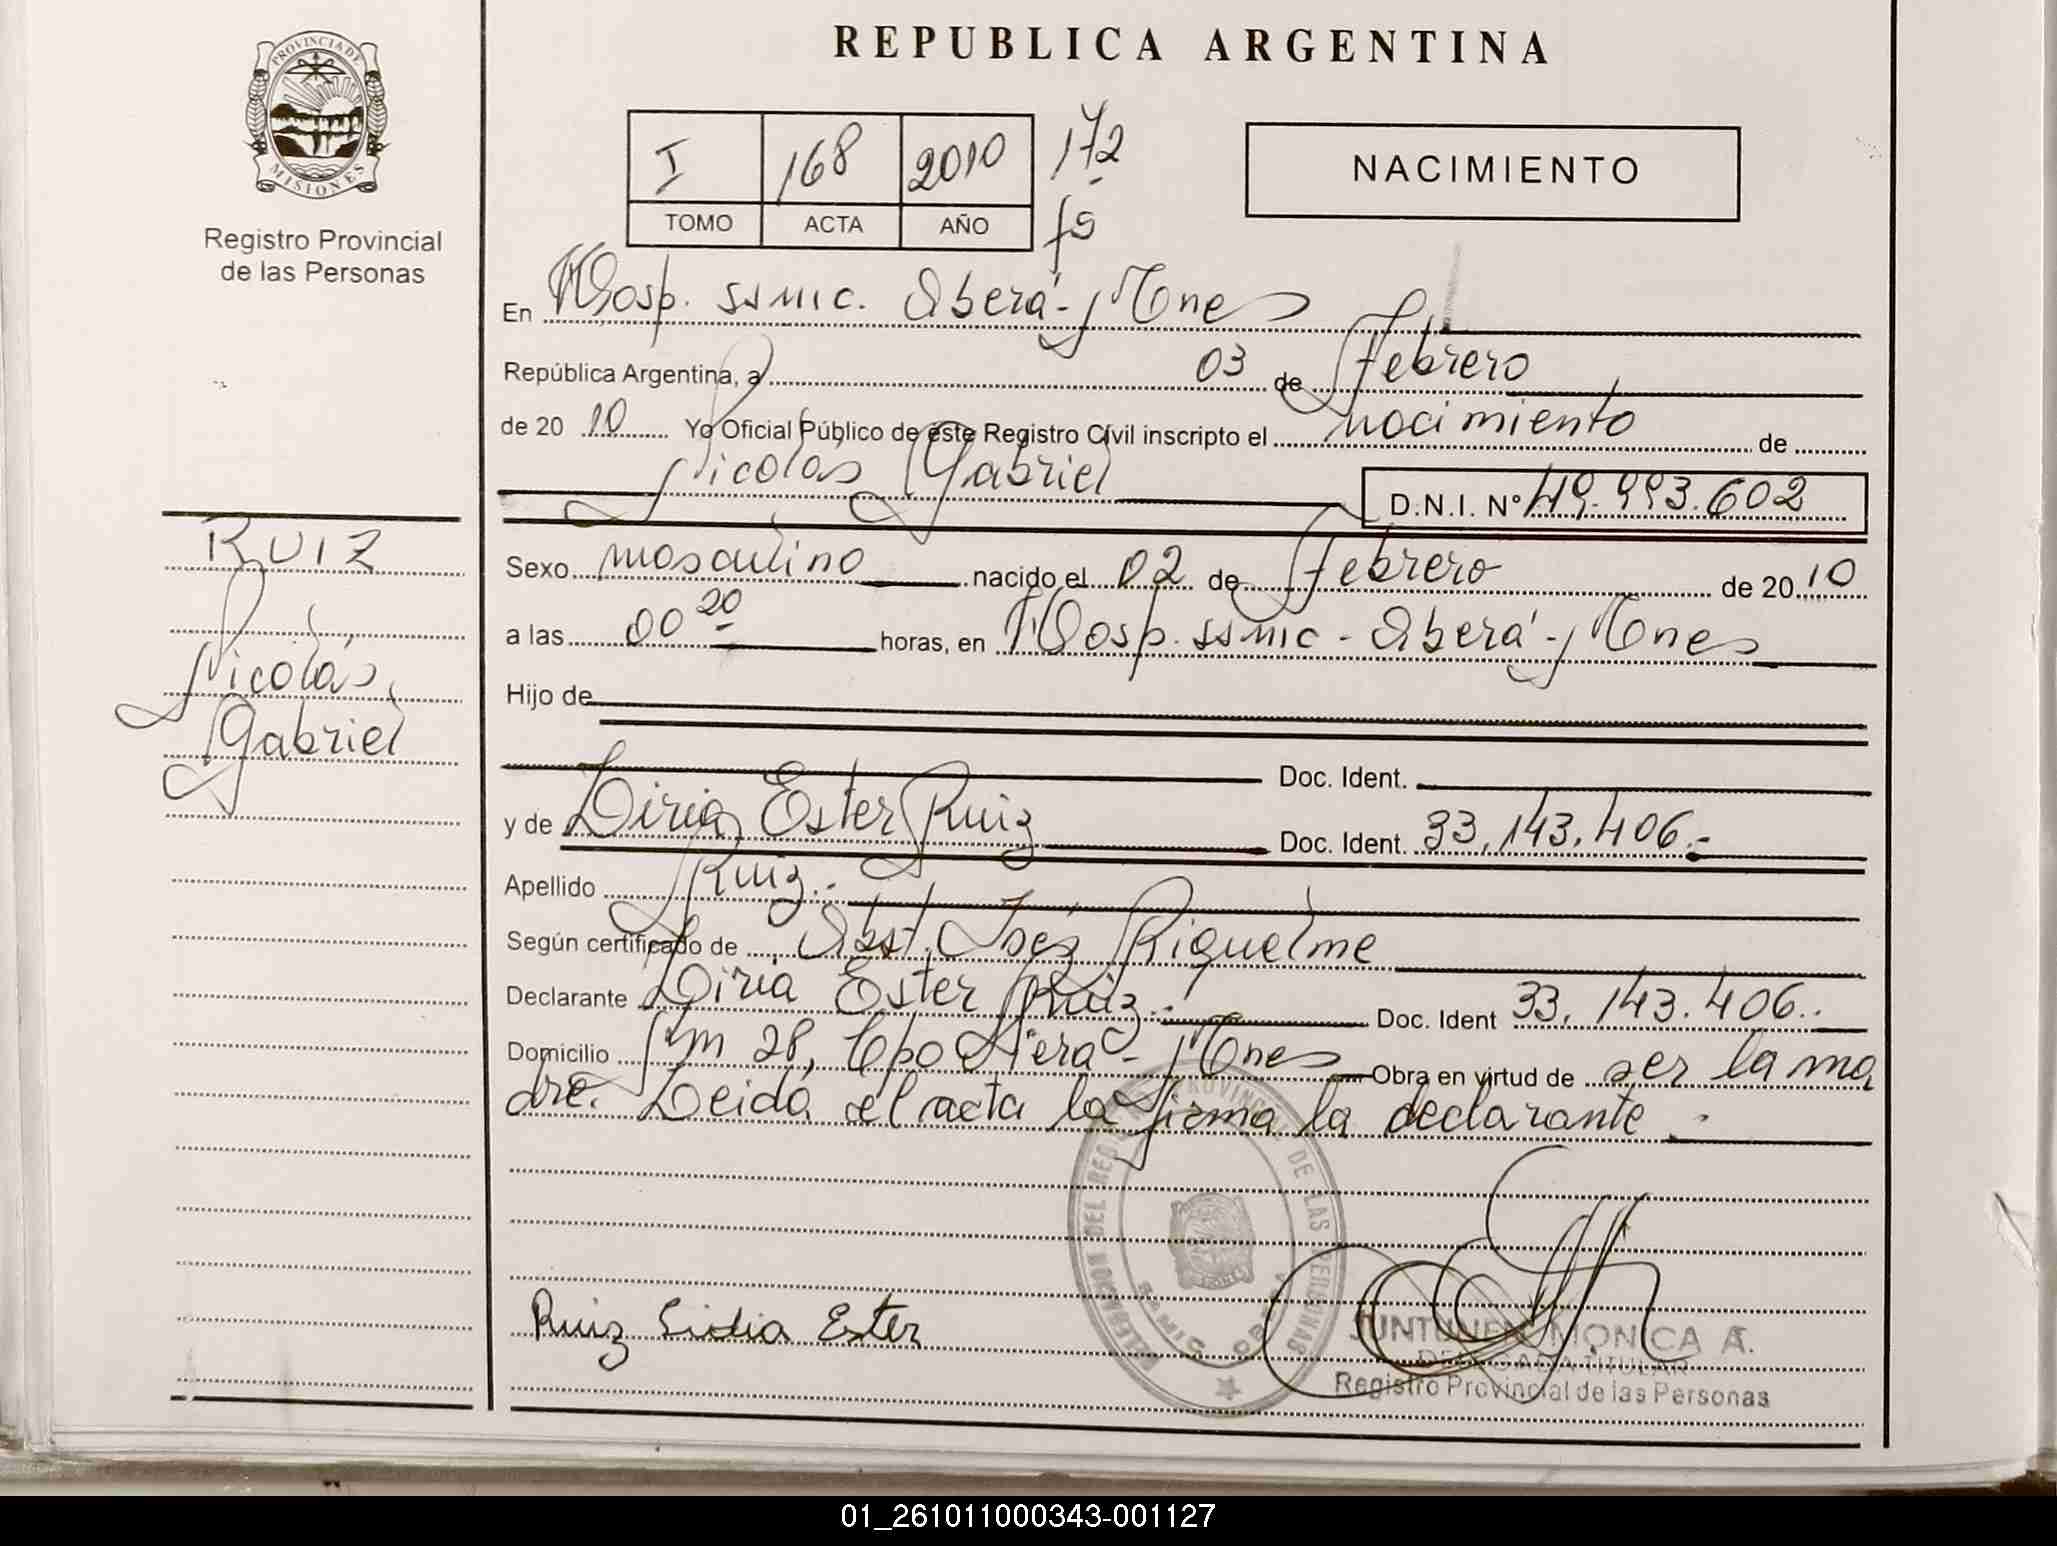 REPUBLICA ARGENTINA
PROVINCIA DE
MISIONES
Registro Provincial
de las Personas
I 168 2010 172
TOMO ACTA AÑO fs
NACIMIENTO
En Hosp. ssmic. Oberá - Mnes
República Argentina, a 03 de Febrero
de 20 10 Yo Oficial Público de éste Registro Civil inscripto el nacimiento de
Nicolás Gabriel D.N.I. Nº 49.993.602
RUIZ
Nicolás
Gabriel
Sexo masculino nacido el 02 de Febrero de 20 10
a las 00 20 horas, en Hosp. ssmic - Oberá - Mnes
Hijo de
Doc. Ident.
y de Liria Ester Ruiz Doc. Ident. 33.143.406.-
Apellido Ruiz.-
Según certificado de Obst. Riquelme
Declarante Liria Ester Ruiz.- Doc. Ident 33.143.406.-
Domicilio Km 28, Cpo Viera - Mnes Obra en virtud de ser la ma
dre. Leida el acta la firma la declarante.-
DELEGACION DEL REGISTRO PROVINCIAL DE LAS PERSONAS
SAMIC OBERA
Ruiz Lidia Ester
JUNTUNEN MONICA A.
DELEGADA TITULAR
Registro Provincial de las Personas
01_261011000343-001127